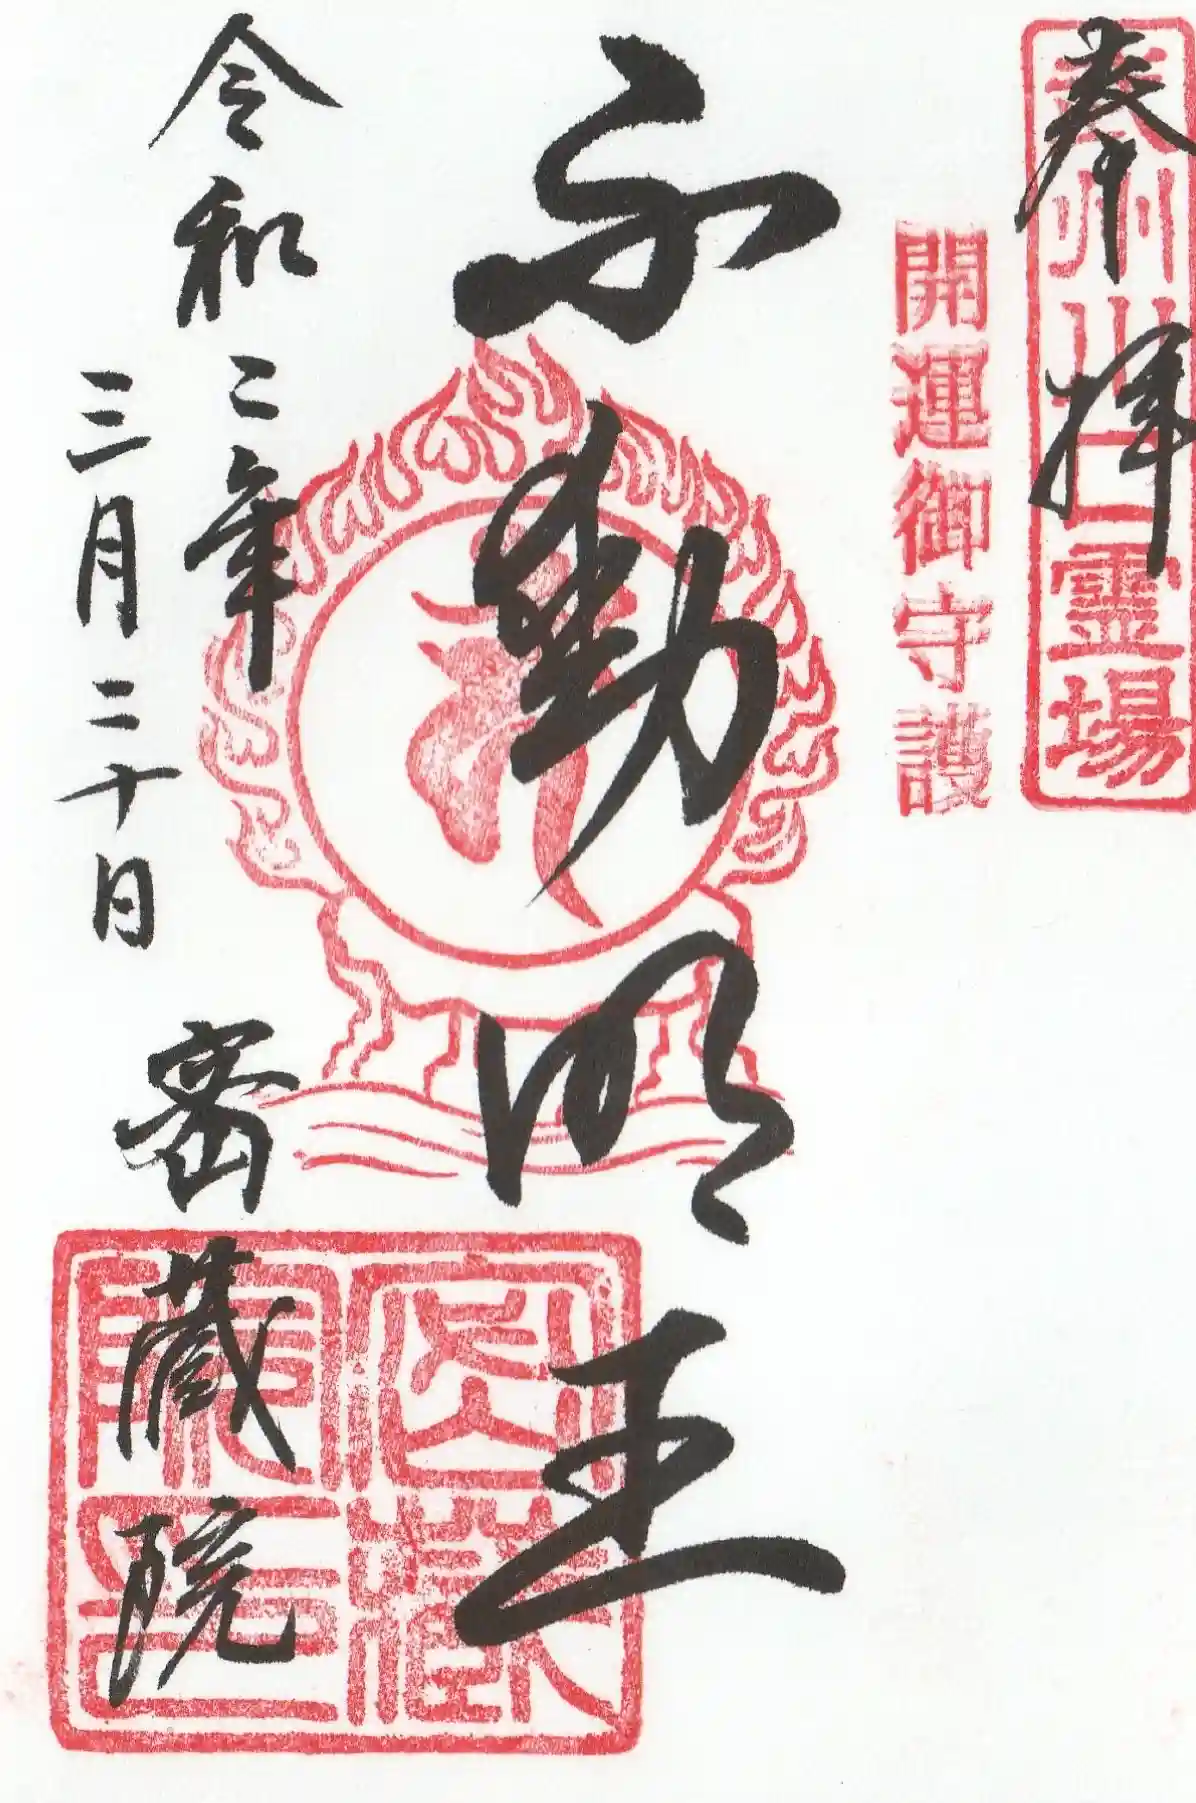 奉拝
武州川口霊場
開運御守護
不動明王
令和二年
三月二十日
密蔵院
密蔵院印